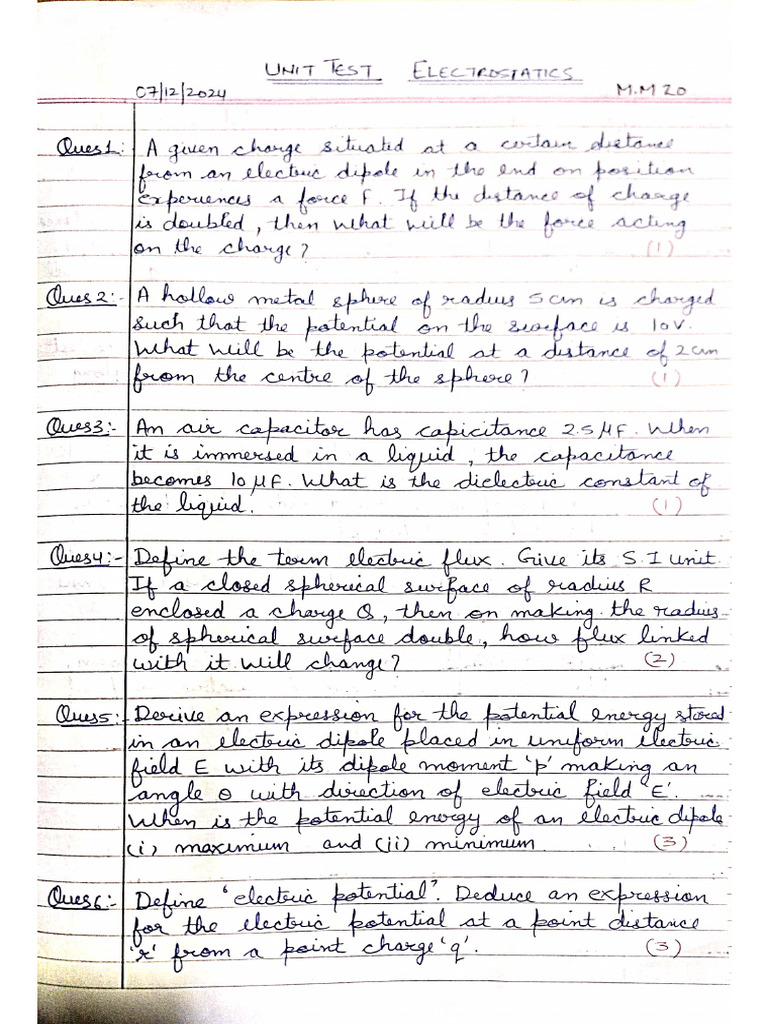 UNIT TEST ELECTROSTATICS
07/12/2024 M.M 20
Ques1:- A given charge situated at a certain distance
from an electric dipole in the end on position
experiences a force F. If the distance of charge
is doubled, then what will be the force acting
on the charge? (1)
Ques2:- A hollow metal sphere of radius 5cm is charged
such that the potential on the surface is 10V.
What will be the potential at a distance of 2cm
from the centre of the sphere? (1)
Ques3:- An air capacitor has capicitance 2.5 μF. When
it is immersed in a liquid, the capacitance
becomes 10 μF. What is the dielectric constant of
the liquid. (1)
Ques4:- Define the term electric flux. Give its S.I unit.
If a closed spherical surface of radius R
enclosed a charge Q, then on making the radius
of spherical surface double, how flux linked
with it will change? (2)
Ques5:- Derive an expression for the potential energy stored
in an electric dipole placed in uniform electric
field E with its dipole moment 'p' making an
angle θ with direction of electric field 'E'.
When is the potential energy of an electric dipole
(i) maximum and (ii) minimum (3)
Ques6:- Define 'electric potential'. Deduce an expression
for the electric potential at a point distance
'r' from a point charge 'q'. (3)